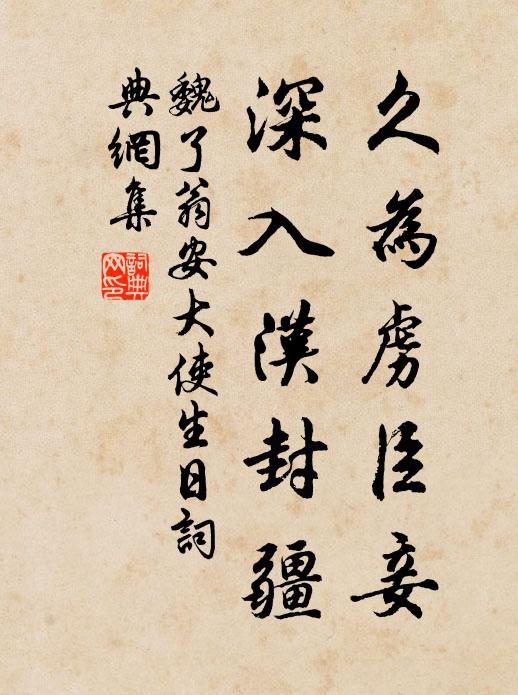 久為虜臣妾
深入漢封疆
魏了翁安大使生日詞
典網集
詞典網印